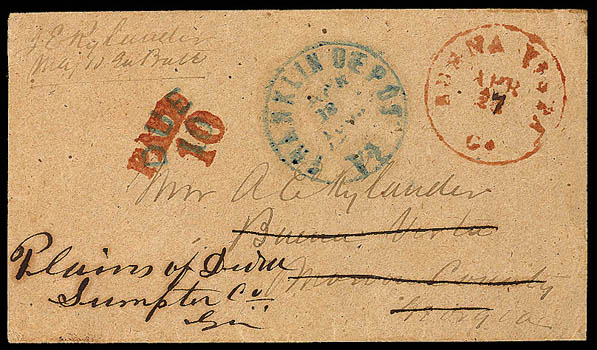 J E Rylander
Maj 10 Ga Batt
DUE
PAID
10
FRANKLIN DEPOT
APR
VA
BUENA VISTA
APR
27
Ga
Mrs A E Rylander
Buena Vista
Marion County
Georgia
Plains of Dura
Sumpter Co.